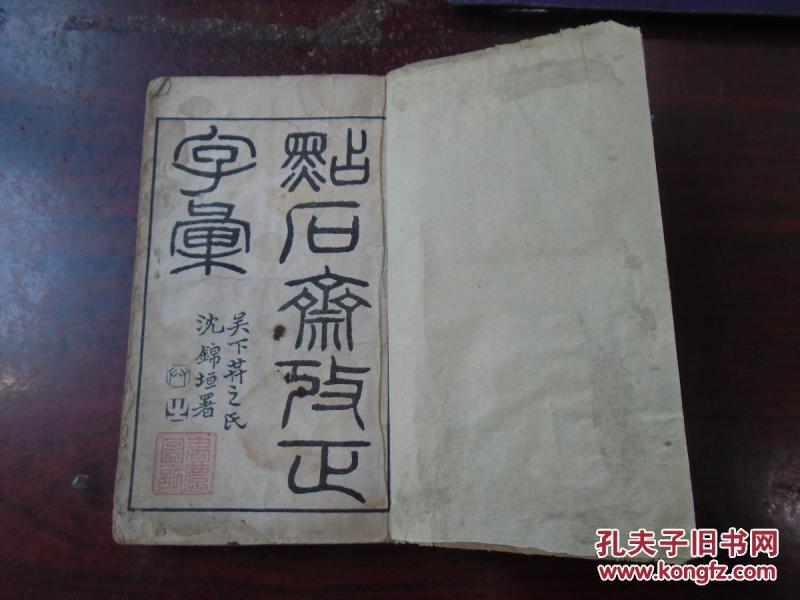 點石齋攷正
字彙
吴下莽之氏
沈錦垣署
孔夫子旧书网
www.kongfz.com